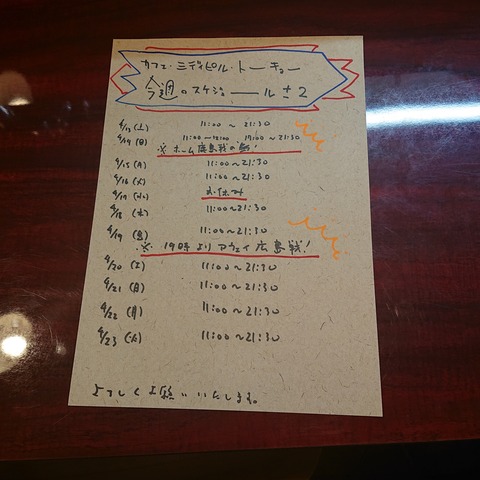 カフェ・ミディピル・トーキョー
今週のスケジュールさ2
4/13(土) 11:00～21:30
4/14(日) 11:00～12:00 17:00～21:30
※ホーム広島戦の為!
4/15(月) 11:00～21:30
4/16(火) 11:00～21:30
4/17(水) お休み
4/18(木) 11:00～21:30
4/19(金) 11:00～21:30
※19時よりアウェイ広島戦!
4/20(土) 11:00～21:30
4/21(日) 11:00～21:30
4/22(月) 11:00～21:30
4/23(火) 11:00～21:30
よろしくお願いいたします。